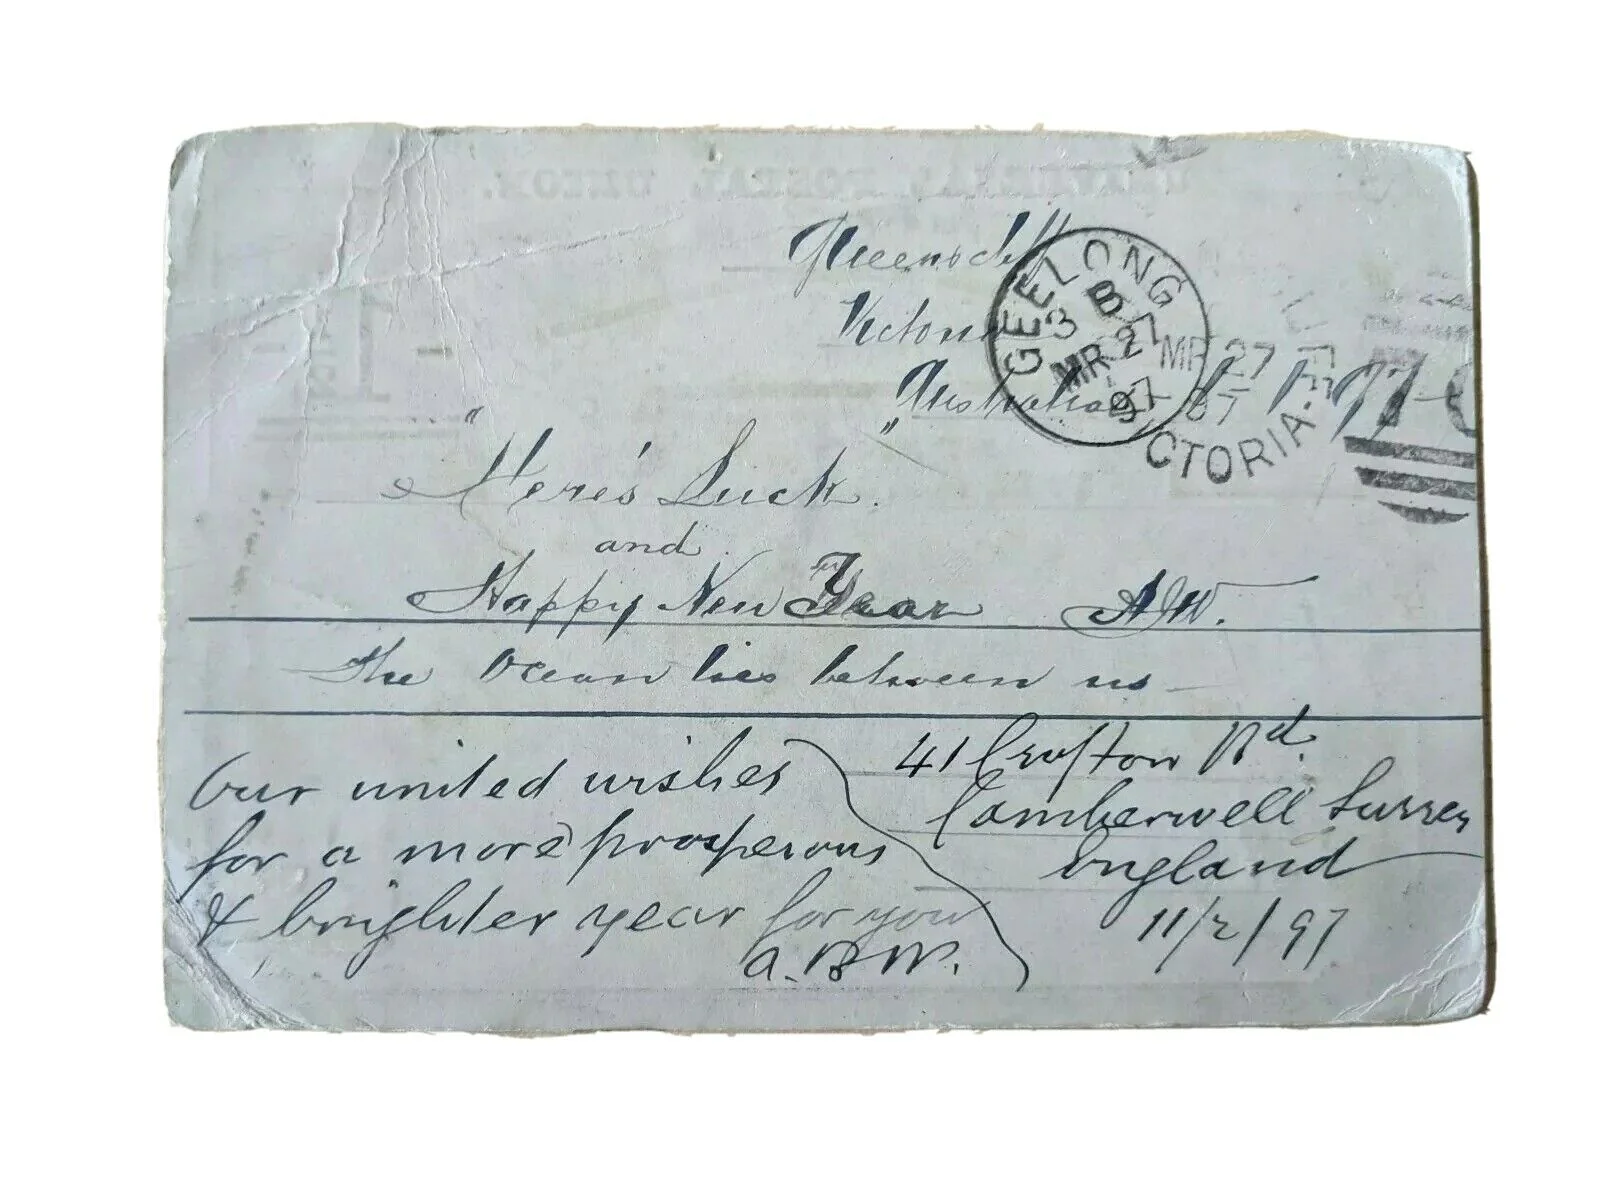 UNIVERSAL POSTAL UNION.
Queenscliff
Victoria
Australia
GEELONG
3 B
MR 27
97
MR 27
97
VICTORIA.
"Here's Luck".
and
Happy New Year A.W.
The Ocean lies between us —
Our united wishes
for a more prosperous
& brighter year for you
A.B.W.
41 Crofton Rd.
Camberwell Surrey
England
11/2/97